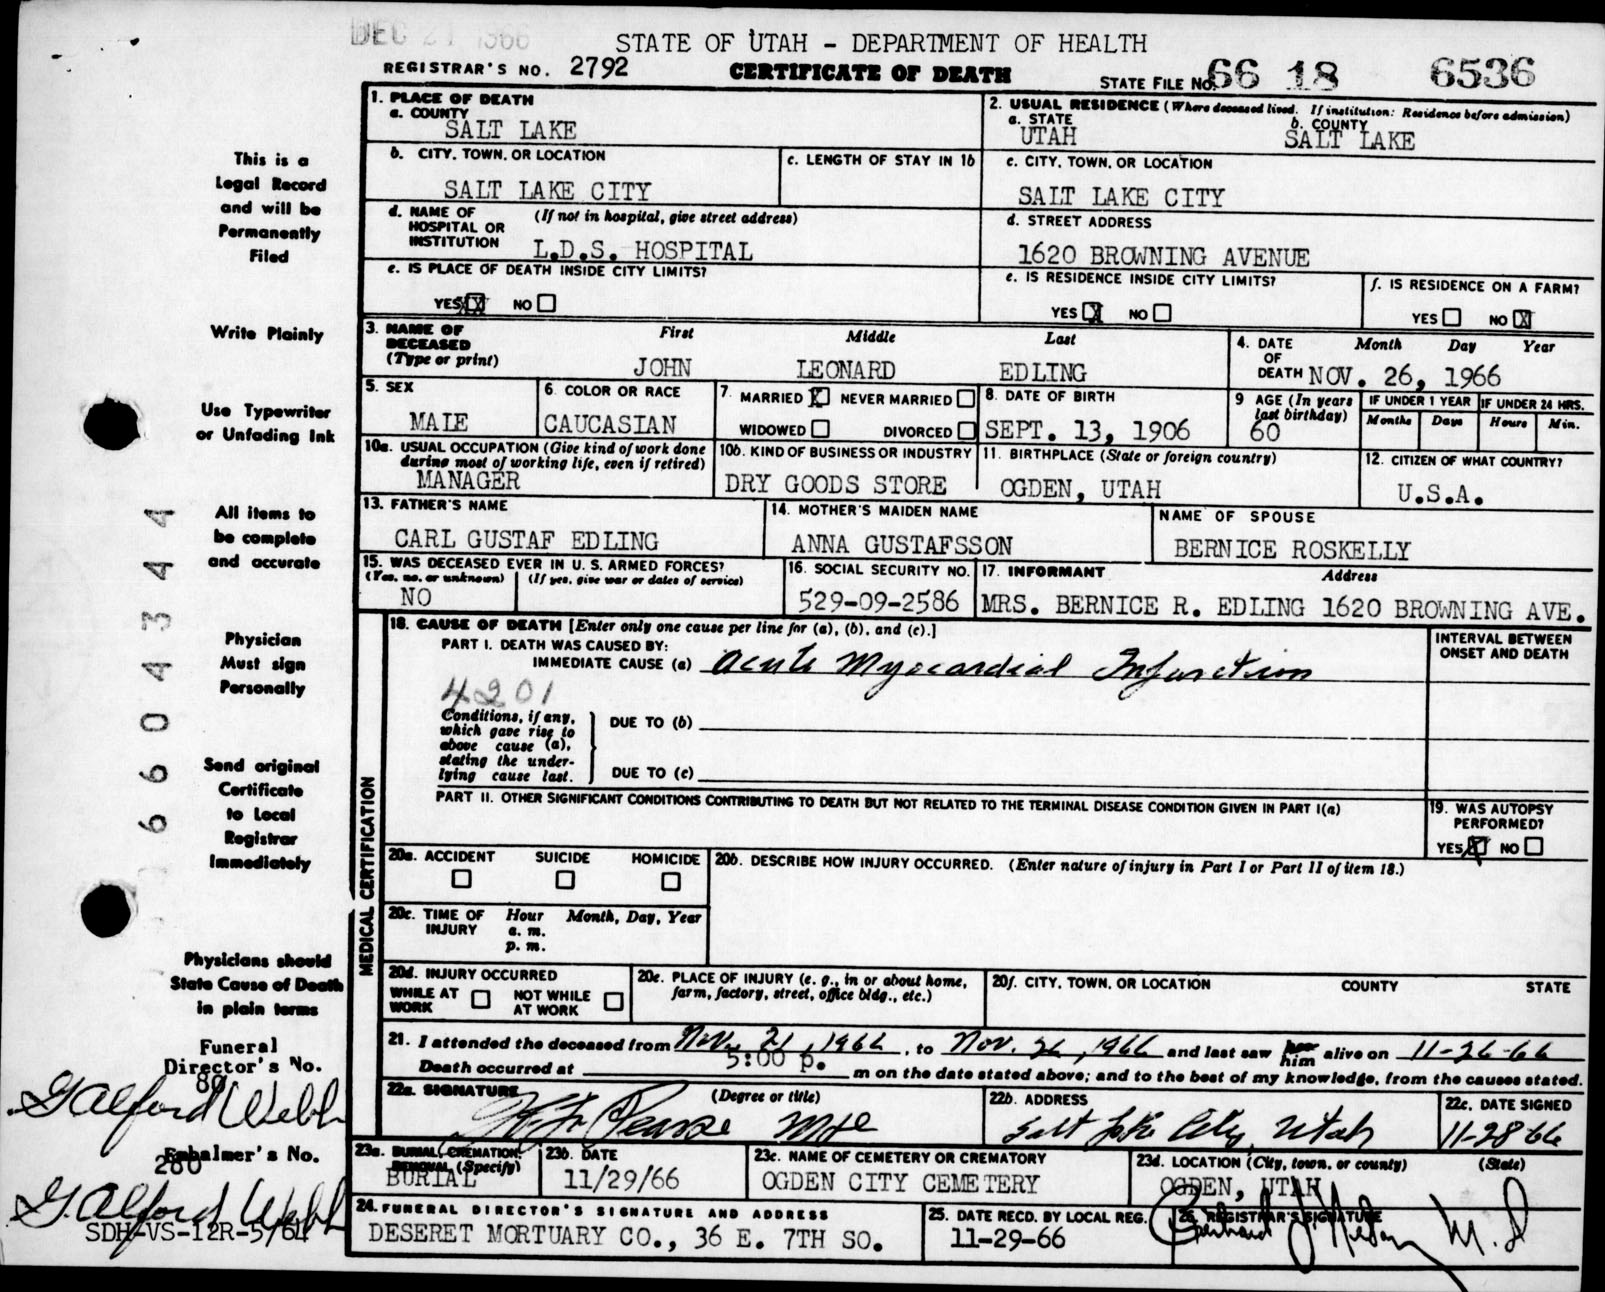 DEC 21 1966
STATE OF UTAH - DEPARTMENT OF HEALTH
REGISTRAR'S NO. 2792
CERTIFICATE OF DEATH
STATE FILE NO. 66 18 6536
This is a
Legal Record
and will be
Permanently
Filed
Write Plainly
Use Typewriter
or Unfading Ink
All items to
be complete
and accurate
Physician
Must sign
Personally
Send original
Certificate
to Local
Registrar
Immediately
Physicians should
State Cause of Death
in plain terms
Funeral
Director's No.
80
G Alford Webb
Embalmer's No.
280
G. Alford Webb
SDH-VS-12R-5/61
6604344
1. PLACE OF DEATH
a. COUNTY
SALT LAKE
2. USUAL RESIDENCE (Where deceased lived. If institution: Residence before admission)
a. STATE
UTAH
b. COUNTY
SALT LAKE
b. CITY, TOWN, OR LOCATION
SALT LAKE CITY
c. LENGTH OF STAY IN 1b
c. CITY, TOWN, OR LOCATION
SALT LAKE CITY
d. NAME OF (If not in hospital, give street address)
HOSPITAL OR
INSTITUTION
L.D.S. HOSPITAL
d. STREET ADDRESS
1620 BROWNING AVENUE
e. IS PLACE OF DEATH INSIDE CITY LIMITS?
YES X NO
e. IS RESIDENCE INSIDE CITY LIMITS?
YES X NO
f. IS RESIDENCE ON A FARM?
YES NO X
3. NAME OF
DECEASED
(Type or print)
First Middle Last
JOHN LEONARD EDLING
4. DATE
OF
DEATH
Month Day Year
NOV. 26, 1966
5. SEX
MALE
6. COLOR OR RACE
CAUCASIAN
7. MARRIED X NEVER MARRIED
WIDOWED DIVORCED
8. DATE OF BIRTH
SEPT. 13, 1906
9 AGE (In years
last birthday)
60
IF UNDER 1 YEAR
Months Days
IF UNDER 24 HRS.
Hours Min.
10a. USUAL OCCUPATION (Give kind of work done
during most of working life, even if retired)
MANAGER
10b. KIND OF BUSINESS OR INDUSTRY
DRY GOODS STORE
11. BIRTHPLACE (State or foreign country)
OGDEN, UTAH
12. CITIZEN OF WHAT COUNTRY?
U.S.A.
13. FATHER'S NAME
CARL GUSTAF EDLING
14. MOTHER'S MAIDEN NAME
ANNA GUSTAFSSON
NAME OF SPOUSE
BERNICE ROSKELLY
15. WAS DECEASED EVER IN U. S. ARMED FORCES?
(Yes, no, or unknown) (If yes, give war or dates of service)
NO
16. SOCIAL SECURITY NO.
529-09-2586
17. INFORMANT Address
MRS. BERNICE R. EDLING 1620 BROWNING AVE.
MEDICAL CERTIFICATION
18. CAUSE OF DEATH [Enter only one cause per line for (a), (b), and (c).]
PART I. DEATH WAS CAUSED BY:
IMMEDIATE CAUSE (a) Acute Myocardial Infarction
4201
INTERVAL BETWEEN
ONSET AND DEATH
Conditions, if any,
which gave rise to
above cause (a),
stating the under-
lying cause last.
DUE TO (b)
DUE TO (c)
PART II. OTHER SIGNIFICANT CONDITIONS CONTRIBUTING TO DEATH BUT NOT RELATED TO THE TERMINAL DISEASE CONDITION GIVEN IN PART I(a)
19. WAS AUTOPSY
PERFORMED?
YES X NO
20a. ACCIDENT SUICIDE HOMICIDE
20b. DESCRIBE HOW INJURY OCCURRED. (Enter nature of injury in Part I or Part II of item 18.)
20c. TIME OF
INJURY
Hour Month, Day, Year
a. m.
p. m.
20d. INJURY OCCURRED
WHILE AT
WORK
NOT WHILE
AT WORK
20e. PLACE OF INJURY (e. g., in or about home,
farm, factory, street, office bldg., etc.)
20f. CITY, TOWN, OR LOCATION COUNTY STATE
21. I attended the deceased from Nov. 21, 1966, to Nov. 26, 1966 and last saw her him alive on 11-26-66
Death occurred at 5:00 p. m on the date stated above; and to the best of my knowledge, from the causes stated.
22a. SIGNATURE (Degree or title)
Pearse
22b. ADDRESS
Salt Lake City, Utah
22c. DATE SIGNED
11-28-66
23a. BURIAL, CREMATION,
REMOVAL (Specify)
BURIAL
23b. DATE
11/29/66
23c. NAME OF CEMETERY OR CREMATORY
OGDEN CITY CEMETERY
23d. LOCATION (City, town, or county) (State)
OGDEN, UTAH
24. FUNERAL DIRECTOR'S SIGNATURE AND ADDRESS
DESERET MORTUARY CO., 36 E. 7TH SO.
25. DATE RECD. BY LOCAL REG.
11-29-66
26. REGISTRAR'S SIGNATURE
M.D